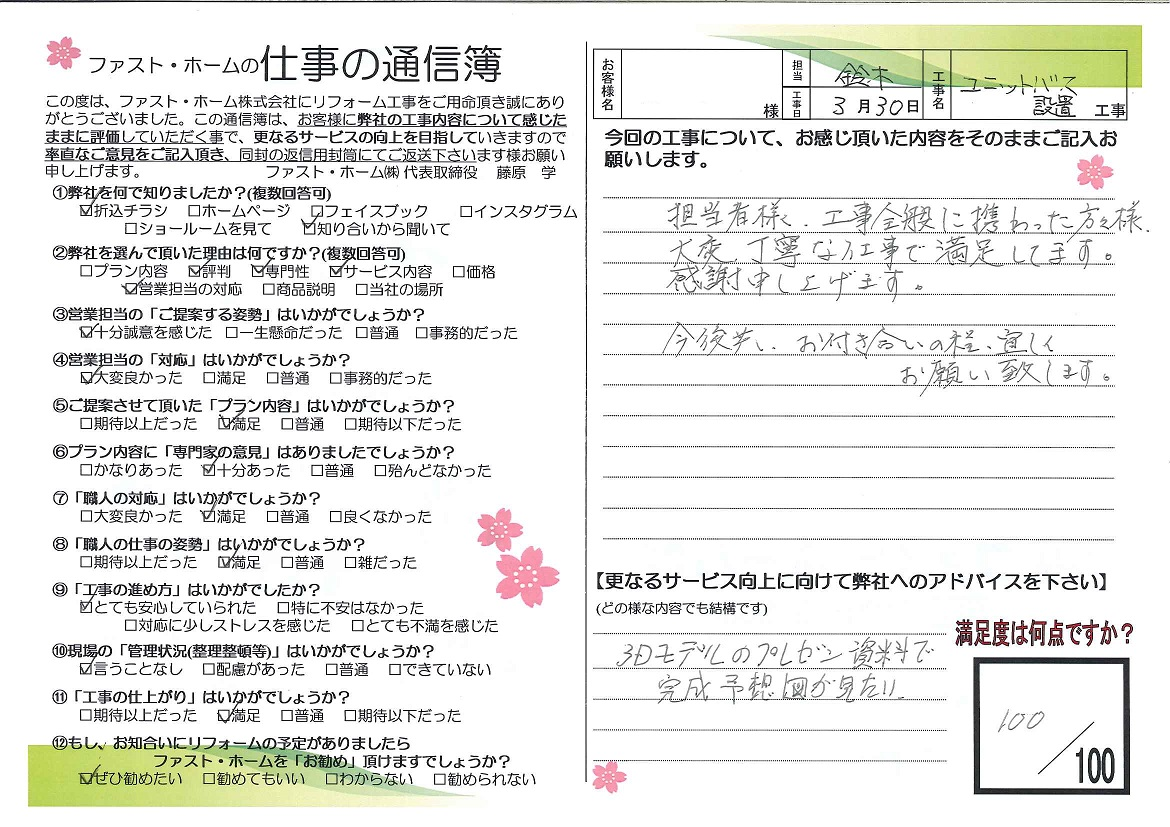 ファスト・ホームの仕事の通信簿
この度は、ファスト・ホーム株式会社にリフォーム工事をご用命頂き誠にあり
がとうございました。この通信簿は、お客様に弊社の工事内容について感じた
ままに評価していただく事で、更なるサービスの向上を目指していきますので
率直なご意見をご記入頂き、同封の返信用封筒にてご返送下さいます様お願い
申し上げます。 ファスト・ホーム㈱ 代表取締役 藤原 学
①弊社を何で知りましたか?(複数回答可)
☑折込チラシ □ホームページ □フェイスブック □インスタグラム
□ショールームを見て ☑知り合いから聞いて
②弊社を選んで頂いた理由は何ですか?(複数回答可)
□プラン内容 ☑評判 ☑専門性 ☑サービス内容 □価格
☑営業担当の対応 □商品説明 □当社の場所
③営業担当の「ご提案する姿勢」はいかがでしょうか?
☑十分誠意を感じた □一生懸命だった □普通 □事務的だった
④営業担当の「対応」はいかがでしょうか?
☑大変良かった □満足 □普通 □事務的だった
⑤ご提案させて頂いた「プラン内容」はいかがでしょうか?
□期待以上だった ☑満足 □普通 □期待以下だった
⑥プラン内容に「専門家の意見」はありましたでしょうか?
□かなりあった ☑十分あった □普通 □殆んどなかった
⑦「職人の対応」はいかがでしょうか?
□大変良かった ☑満足 □普通 □良くなかった
⑧「職人の仕事の姿勢」はいかがでしょうか?
□期待以上だった ☑満足 □普通 □雑だった
⑨「工事の進め方」はいかがでしたか?
☑とても安心していられた □特に不安はなかった
□対応に少しストレスを感じた □とても不満を感じた
⑩現場の「管理状況(整理整頓等)」はいかがでしょうか?
☑言うことなし □配慮があった □普通 □できていない
⑪「工事の仕上がり」はいかがでしょうか?
□期待以上だった ☑満足 □普通 □期待以下だった
⑫もし、お知合いにリフォームの予定がありましたら
ファスト・ホームを「お勧め」頂けますでしょうか?
☑ぜひ勧めたい □勧めてもいい □わからない □勧められない
お客様名 様 担当 鈴木 工事日 3月30日 工事名 ユニットバス
設置 工事
今回の工事について、お感じ頂いた内容をそのままご記入お
願いします。
担当者様、工事全般に携わった方々様、
大変丁寧な工事で満足してます。
感謝申し上げます。
今後共、お付き合いの程、宜しく
お願い致します。
【更なるサービス向上に向けて弊社へのアドバイスを下さい】
(どの様な内容でも結構です)
3Dモデルのプレゼン資料で
完成予想図が見たい。
満足度は何点ですか?
100/100